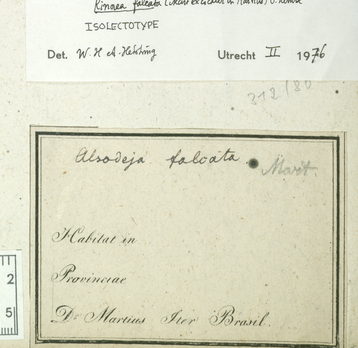 falcata (Mart. ex Eichler in Martius) O. Kuntze
ISOLECTOTYPE
Det. W H A Hekking Utrecht II 1976
312/80
Alsodeja falcata. Mart.
Habitat in
Provinciae
Dr Martius Iter Brasil.
2
5